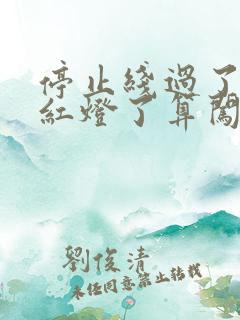 停止綫過了
紅燈了算闖
劉俊清
未经同意禁止转载